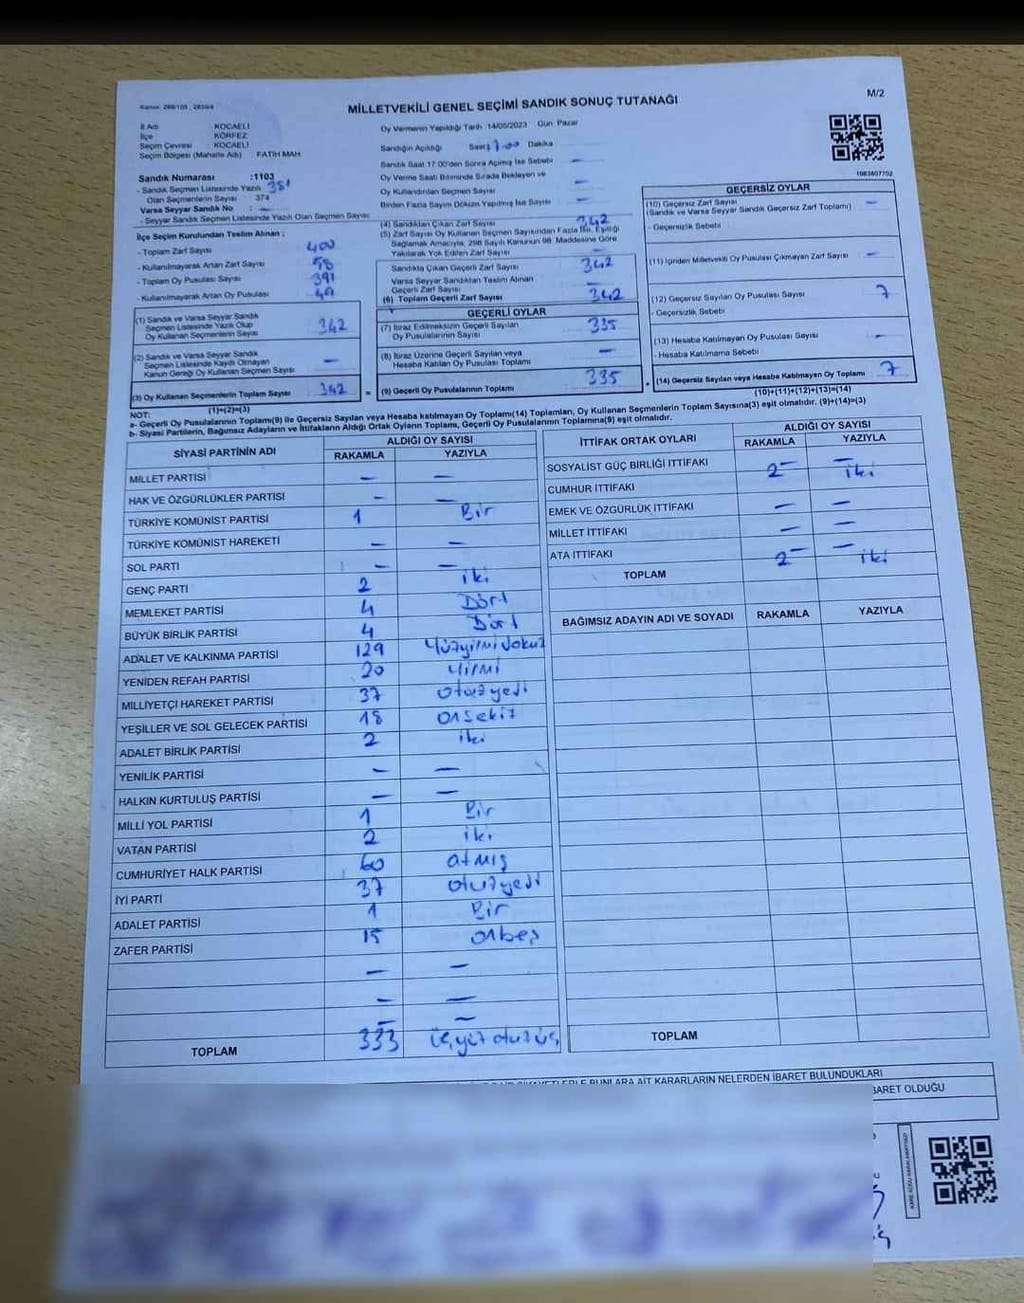 MİLLETVEKİLİ GENEL SEÇİMİ SANDIK SONUÇ TUTANAĞI
M/2
İl Adı KOCAELİ
İlçe KÖRFEZ
Seçim Çevresi KOCAELİ
Seçim Bölgesi (Mahalle Adı) FATİH MAH
Sandık Numarası :1103
- Sandık Seçmen Listesinde Yazılı 381
Olan Seçmenlerin Sayısı 374
Varsa Seyyar Sandık No : -
- Seyyar Sandık Seçmen Listesinde Yazılı Olan Seçmen Sayısı
Oy Vermenin Yapıldığı Tarih 14/05/2023 Gün Pazar
Sandığın Açıldığı Saat Dakika
Sandık Saat 17.00'den Sonra Açılmış İse Sebebi -
Oy Verme Saati Bitiminde Sırada Bekleyen ve
Oy Kullandırılan Seçmen Sayısı -
Birden Fazla Sayım Döküm Yapılmış İse Sayısı -
İlçe Seçim Kurulundan Teslim Alınan ;
- Toplam Zarf Sayısı 400
- Kullanılmayarak Artan Zarf Sayısı 58
- Toplam Oy Pusulası Sayısı 391
- Kullanılmayarak Artan Oy Pusulası 49
(1) Sandık ve Varsa Seyyar Sandık
Seçmen Listesinde Yazılı Olup
Oy Kullanan Seçmenlerin Sayısı 342
(2) Sandık ve Varsa Seyyar Sandık
Seçmen Listesinde Kayıtlı Olmayan
Kanun Gereği Oy Kullanan Seçmen Sayısı -
(3) Oy Kullanan Seçmenlerin Toplam Sayısı 342
(1)+(2)=(3)
(4) Sandıktan Çıkan Zarf Sayısı 342
(5) Zarf Sayısı Oy Kullanan Seçmen Sayısından Fazla İse, Eşitliği
Sağlamak Amacıyla, 298 Sayılı Kanunun 98. Maddesine Göre
Yakılarak Yok Edilen Zarf Sayısı -
Sandıkta Çıkan Geçerli Zarf Sayısı 342
Varsa Seyyar Sandıktan Teslim Alınan
Geçerli Zarf Sayısı -
(6) Toplam Geçerli Zarf Sayısı 342
GEÇERLİ OYLAR
(7) İtiraz Edilmeksizin Geçerli Sayılan
Oy Pusulalarının Sayısı 335
(8) İtiraz Üzerine Geçerli Sayılan veya
Hesaba Katılan Oy Pusulası Toplamı -
= (9) Geçerli Oy Pusulalarının Toplamı 335
1663807702
GEÇERSİZ OYLAR
(10) Geçersiz Zarf Sayısı
(Sandık ve Varsa Seyyar Sandık Geçersiz Zarf Toplamı) -
- Geçersizlik Sebebi
(11) İçinden Milletvekili Oy Pusulası Çıkmayan Zarf Sayısı -
(12) Geçersiz Sayılan Oy Pusulası Sayısı 7
- Geçersizlik Sebebi
(13) Hesaba Katılmayan Oy Pusulası Sayısı -
- Hesaba Katılmama Sebebi
+ (14) Geçersiz Sayılan veya Hesaba Katılmayan Oy Toplamı 7
(10)+(11)+(12)+(13)=(14)
NOT:
a- Geçerli Oy Pusulalarının Toplamı(9) ile Geçersiz Sayılan veya Hesaba katılmayan Oy Toplamı(14) Toplamları, Oy Kullanan Seçmenlerin Toplam Sayısına(3) eşit olmalıdır. (9)+(14)=(3)
b- Siyasi Partilerin, Bağımsız Adayların ve İttifakların Aldığı Ortak Oyların Toplamı, Geçerli Oy Pusulalarının Toplamına(9) eşit olmalıdır.
SİYASİ PARTİNİN ADI ALDIĞI OY SAYISI
RAKAMLA YAZIYLA
MİLLET PARTİSİ - -
HAK VE ÖZGÜRLÜKLER PARTİSİ - -
TÜRKİYE KOMÜNİST PARTİSİ 1 Bir
TÜRKİYE KOMÜNİST HAREKETİ - -
SOL PARTİ - -
GENÇ PARTİ 2 iki
MEMLEKET PARTİSİ 4 Dört
BÜYÜK BİRLİK PARTİSİ 4 Dört
ADALET VE KALKINMA PARTİSİ 129 Yüzyirmidokuz
YENİDEN REFAH PARTİSİ 20 Yirmi
MİLLİYETÇİ HAREKET PARTİSİ 37 otuzyedi
YEŞİLLER VE SOL GELECEK PARTİSİ 18 onsekiz
ADALET BİRLİK PARTİSİ 2 iki
YENİLİK PARTİSİ - -
HALKIN KURTULUŞ PARTİSİ - -
MİLLİ YOL PARTİSİ 1 Bir
VATAN PARTİSİ 2 iki
CUMHURİYET HALK PARTİSİ 60 atmış
İYİ PARTİ 37 otuzyedi
ADALET PARTİSİ 1 Bir
ZAFER PARTİSİ 15 onbeş
- -
- -
- -
TOPLAM 333 üçyüz otuzüç
İTTİFAK ORTAK OYLARI ALDIĞI OY SAYISI
RAKAMLA YAZIYLA
SOSYALİST GÜÇ BİRLİĞİ İTTİFAKI - -
CUMHUR İTTİFAKI 2 iki
EMEK VE ÖZGÜRLÜK İTTİFAKI - -
MİLLET İTTİFAKI - -
ATA İTTİFAKI - -
TOPLAM 2 iki
BAĞIMSIZ ADAYIN ADI VE SOYADI RAKAMLA YAZIYLA
TOPLAM
BUNLARA AİT KARARLARIN NELERDEN İBARET BULUNDUKLARI
İBARET OLDUĞU